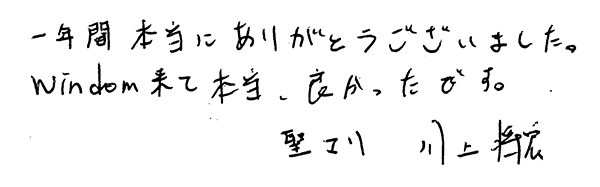 一年間 本当に ありがとうございました。
Windom来て本当、良かったです。
聖マリ 川上 将宏